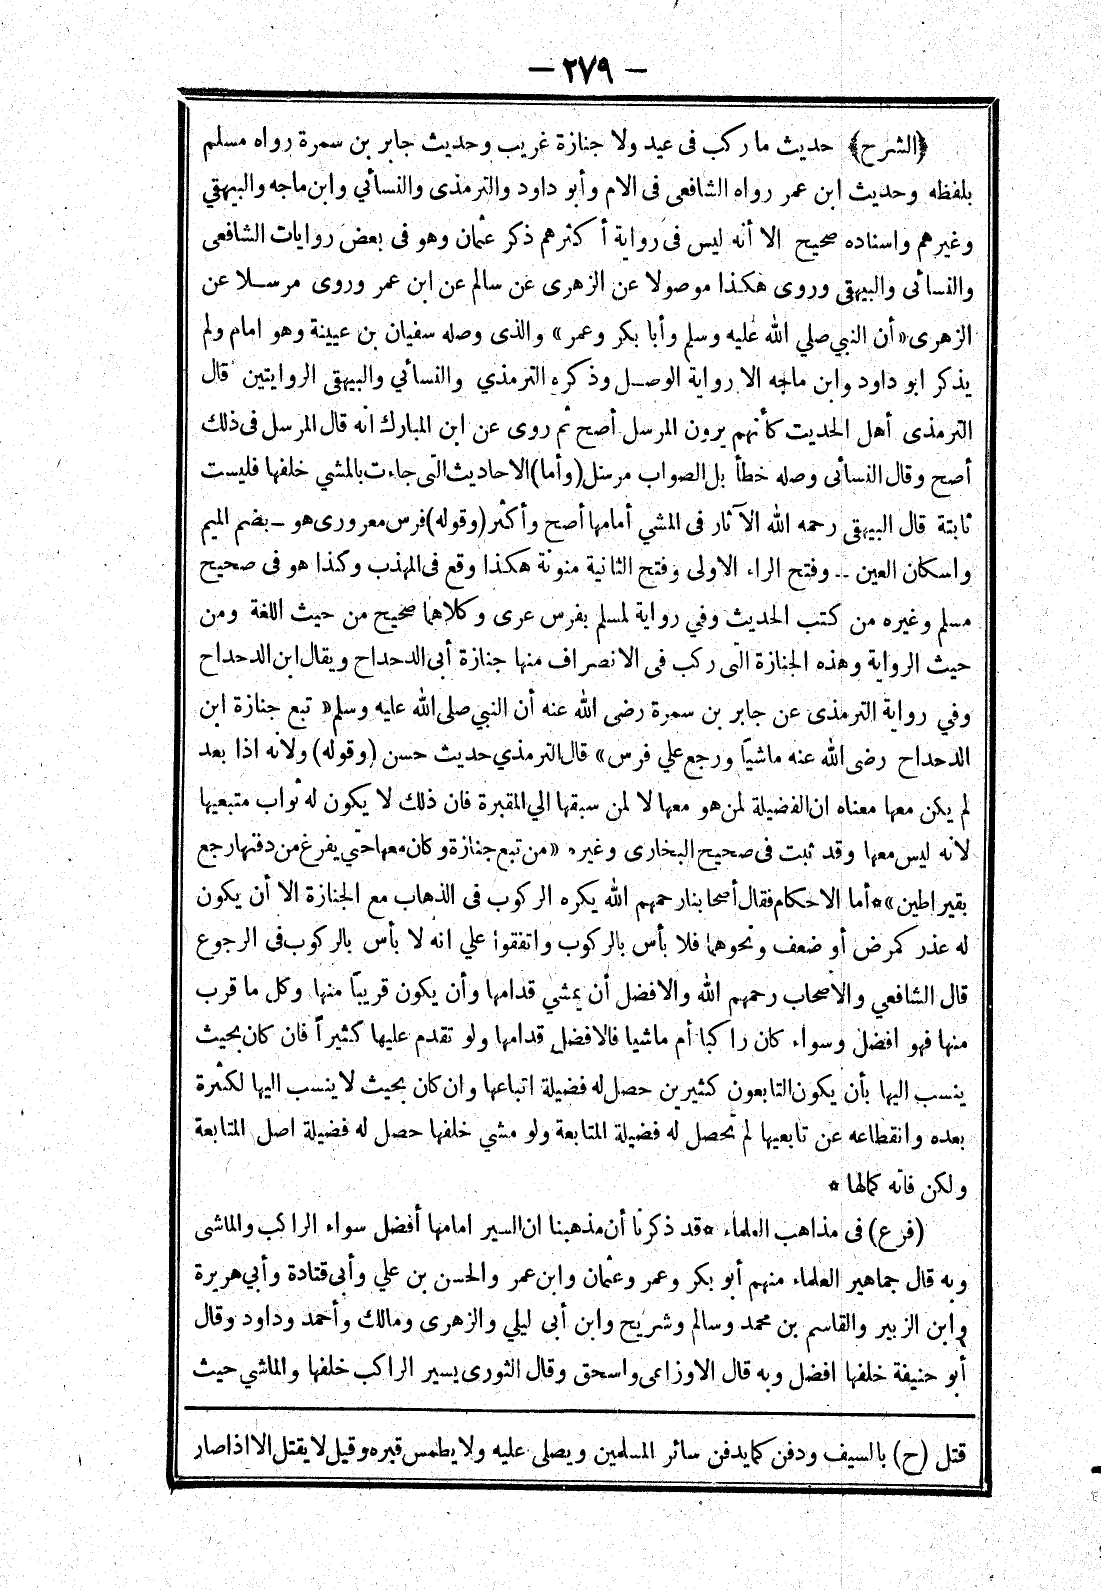 — ٢٧٩ —
﴿الشرح﴾ حديث ما ركب فى عيد ولا جنازة غريب وحديث جابر بن سمرة رواه مسلم
بلفظه وحديث ابن عمر رواه الشافعى فى الام وأبو داود والترمذى والنسائي وابن ماجه والبيهقي
وغيرهم واسناده صحيح الا أنه ليس فى رواية أكثرهم ذكر عثمان وهو فى بعض روايات الشافعى
والنسائى والبيهقى وروى هكذا موصولا عن الزهرى عن سالم عن ابن عمر وروى مرسلا عن
الزهرى «أن النبي صلي الله عليه وسلم وأبا بكر وعمر» والذى وصله سفيان بن عيينة وهو امام ولم
يذكر ابو داود وابن ماجه الا رواية الوصل وذكره الترمذي والنسائي والبيهقى الروايتين قال
الترمذى أهل الحديث كأنهم يرون المرسل أصح ثم روى عن ابن المبارك انه قال المرسل فى ذلك
أصح وقال النسائى وصله خطأ بل الصواب مرسل (وأما) الاحاديث التى جاءت بالمشي خلفها فليست
ثابتة قال البيهقى رحمه الله الآثار فى المشي أمامها أصح وأكثر (وقوله) فرس معرورى هو ـ بضم الميم
واسكان العين ـ وفتح الراء الاولى وفتح الثانية منونة هكذا وقع فى المهذب وكذا هو فى صحيح
مسلم وغيره من كتب الحديث وفي رواية لمسلم بفرس عرى وكلاهما صحيح من حيث اللغة ومن
حيث الرواية وهذه الجنازة التى ركب فى الانصراف منها جنازة أبى الدحداح ويقال ابن الدحداح
وفي رواية الترمذى عن جابر بن سمرة رضى الله عنه أن النبي صلى الله عليه وسلم «تبع جنازة ابن
الدحداح رضى الله عنه ماشيًا ورجع علي فرس» قال الترمذي حديث حسن (وقوله) ولانه اذا بعد
لم يكن معها معناه ان الفضيلة لمن هو معها لا لمن سبقها الي المقبرة فان ذلك لا يكون له ثواب متبعيها
لانه ليس معها وقد ثبت فى صحيح البخارى وغيره «من تبع جنازة وكان معها حتي يفرغ من دفنها رجع
بقيراطين» * أما الاحكام فقال أصحابنا رحمهم الله يكره الركوب فى الذهاب مع الجنازة الا أن يكون
له عذر كمرض أو ضعف ونحوهما فلا بأس بالركوب واتفقوا علي انه لا بأس بالركوب فى الرجوع
قال الشافعي والاصحاب رحمهم الله والافضل أن يمشي قدامها وأن يكون قريبًا منها وكل ما قرب
منها فهو افضل وسواء كان راكبا أم ماشيا فالافضل قدامها ولو تقدم عليها كثيراً فان كان بحيث
ينسب اليها بأن يكون التابعون كثيرين حصل له فضيلة اتباعها وان كان بحيث لا ينسب اليها لكثرة
بعده وانقطاعه عن تابعيها لم تحصل له فضيلة المتابعة ولو مشي خلفها حصل له فضيلة اصل المتابعة
ولكن فاته كمالها *
(فرع) فى مذاهب العلماء * قد ذكرنا أن مذهبنا ان السير امامها أفضل سواء الراكب والماشى
وبه قال جماهير العلماء منهم أبو بكر وعمر وعثمان وابن عمر والحسن بن علي وأبى قتادة وأبي هريرة
وابن الزبير والقاسم بن محمد وسالم وشريح وابن أبى ليلي والزهرى ومالك وأحمد وداود وقال
أبو حنيفة خلفها افضل وبه قال الاوزاعى واسحق وقال الثورى يسير الراكب خلفها والماشي حيث
قتل (ح) بالسيف ودفن كما يدفن سائر المسلمين ويصلى عليه ولا يطمس قبره وقيل لا يقتل الا اذا صار